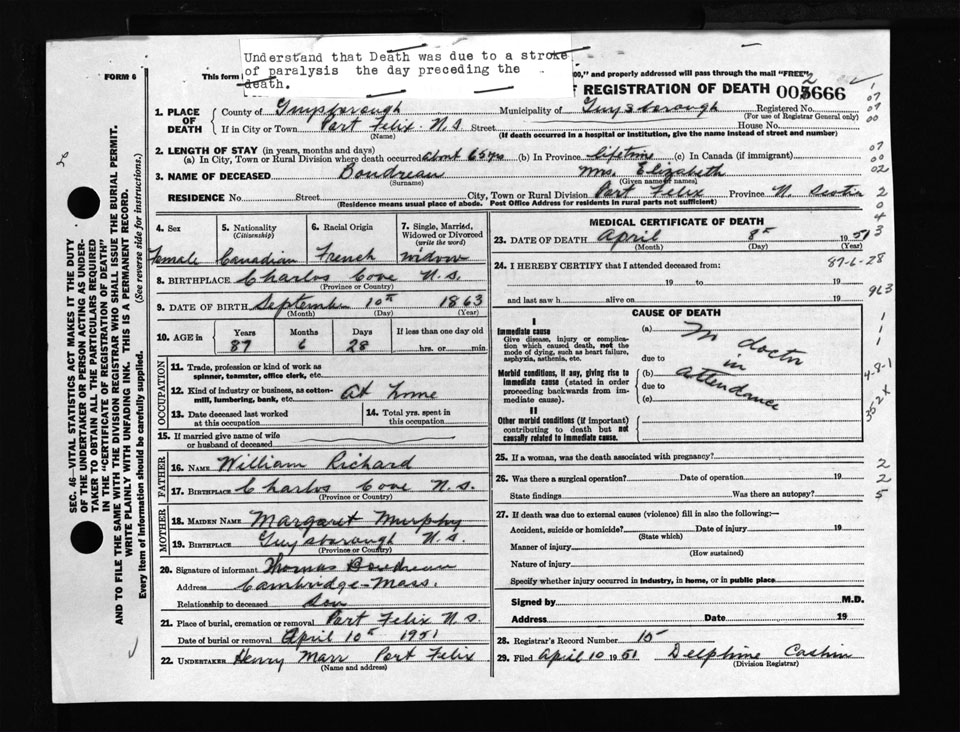 Understand that Death was due to a stroke
of paralysis the day preceding the
death.
FORM 6
This form
00," and properly addressed will pass through the mail "FREE"
REGISTRATION OF DEATH 003666
2
1. PLACE OF DEATH
County of Guysborough Municipality of Guysborough Registered No.
(For use of Registrar General only)
If in City or Town Port Felix N.S. Street House No.
(Name) (If death occurred in a hospital or institution, give the name instead of street and number)
2. LENGTH OF STAY (in years, months and days)
(a) In City, Town or Rural Division where death occurred about 65 yrs (b) In Province lifetime (c) In Canada (if immigrant)
3. NAME OF DECEASED Boudreau Mrs. Elizabeth
(Surname) (Given name or names)
RESIDENCE No. Street City, Town or Rural Division Port Felix Province N. Scotia
(Residence means usual place of abode. Post Office Address for residents in rural parts not sufficient)
4. Sex
Female
5. Nationality
(Citizenship)
Canadian
6. Racial Origin
French
7. Single, Married,
Widowed or Divorced
(write the word)
Widow
8. BIRTHPLACE Charlos Cove N.S.
(Province or Country)
9. DATE OF BIRTH September 10th 1863
(Month) (Day) (Year)
10. AGE in Years Months Days If less than one day old
87 6 28 hrs. or min.
OCCUPATION
11. Trade, profession or kind of work as
spinner, teamster, office clerk, etc.
12. Kind of industry or business, as cotton-
mill, lumbering, bank, etc. At Home
13. Date deceased last worked
at this occupation
14. Total yrs. spent in
this occupation
15. If married give name of wife
or husband of deceased
FATHER
16. NAME William Richard
17. BIRTHPLACE Charlos Cove N.S.
(Province or Country)
MOTHER
18. MAIDEN NAME Margaret Murphy
19. BIRTHPLACE Guysborough N.S.
(Province or Country)
20. Signature of informant Thomas Boudreau
Address Cambridge-Mass.
Relationship to deceased Son
21. Place of burial, cremation or removal Port Felix N.S.
Date of burial or removal April 10th 1951
22. UNDERTAKER Henry Marr Port Felix
(Name and address)
MEDICAL CERTIFICATE OF DEATH
23. DATE OF DEATH April 8th 1951
(Month) (Day) (Year)
24. I HEREBY CERTIFY that I attended deceased from:
19 to 19
and last saw h alive on 19
CAUSE OF DEATH
I
Immediate cause
Give disease, injury or complica-
tion which caused death, not the
mode of dying, such as heart failure,
asphyxia, asthenia, etc.
Morbid conditions, if any, giving rise to
immediate cause (stated in order
proceeding backwards from im-
mediate cause).
II
Other morbid conditions (if important)
contributing to death but not
causally related to immediate cause.
(a)
due to
(b)
due to
(c)
No doctor
in
attendance
25. If a woman, was the death associated with pregnancy?
26. Was there a surgical operation? Date of operation 19
State findings Was there an autopsy?
27. If death was due to external causes (violence) fill in also the following:—
Accident, suicide or homicide? Date of injury 19
(State which)
Manner of injury
(How sustained)
Nature of injury
Specify whether injury occurred in industry, in home, or in public place
Signed by M.D.
Address Date 19
28. Registrar's Record Number 15
29. Filed April 10 1951 Delphine Cashin
(Division Registrar)
SEC. 46—VITAL STATISTICS ACT MAKES IT THE DUTY
OF THE UNDERTAKER OR PERSON ACTING AS UNDER-
TAKER TO OBTAIN ALL THE PARTICULARS REQUIRED
IN THE "CERTIFICATE OF REGISTRATION OF DEATH"
AND TO FILE THE SAME WITH THE DIVISION REGISTRAR WHO SHALL ISSUE THE BURIAL PERMIT.
WRITE PLAINLY WITH UNFADING INK. THIS IS A PERMANENT RECORD.
Every item of information should be carefully supplied. (See reverse side for instructions.)
1
07
07
00
07
00
02
2
0
4
3
87-6-28
963
1
1
1
4-8-1
352X
2
2
5